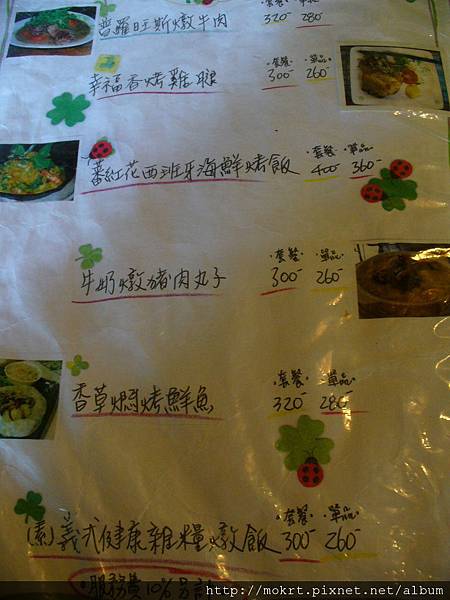 普羅旺斯燉牛肉 套餐 320- 單品 280-
幸福香烤雞腿 套餐 300- 單品 260-
蕃紅花西班牙海鮮烤飯 套餐 400- 單品 360-
牛奶燉豬肉丸子 套餐 300- 單品 260-
香草焗烤鮮魚 套餐 320- 單品 280-
(素)義式健康雜糧燉飯 套餐 300- 單品 260-
服務費10%另計
http://mokrt.pixnet.net/album